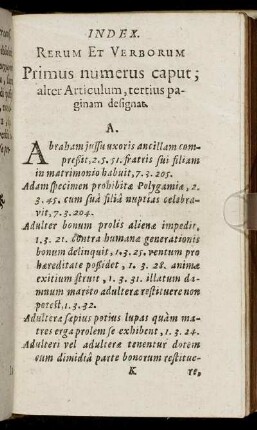 INDEX.
RERUM ET VERBORUM
Primus numerus caput;
alter Articulum, tertius pa-
ginam designat.
A.
Abraham jussu uxoris ancillam com-
pressit, 2. 5. 51. fratris sui filiam
in matrimonio habuit, 7. 3. 205.
Adam specimen prohibitæ Polygamiæ, 2.
3. 45. cum suâ filiâ nuptias celebra-
vit, 7. 3. 204.
Adulter bonum prolis alienæ impedit,
1. 3. 21. contra humanæ generationis
bonum delinquit, 1. 3. 25. ventum pro
hæreditate possidet, 1. 3. 28. animæ
exitium struit, 1. 3. 31. illatum da-
mnum marito adulteræ restituere non
potest, 1. 3. 32.
Adulteræ sæpius potius lupas quàm ma-
tres erga prolem se exhibent, 1. 3. 24.
Adulteri vel adulteræ tenentur dotem
cum dimidiâ parte bonorum restitue-
K re,